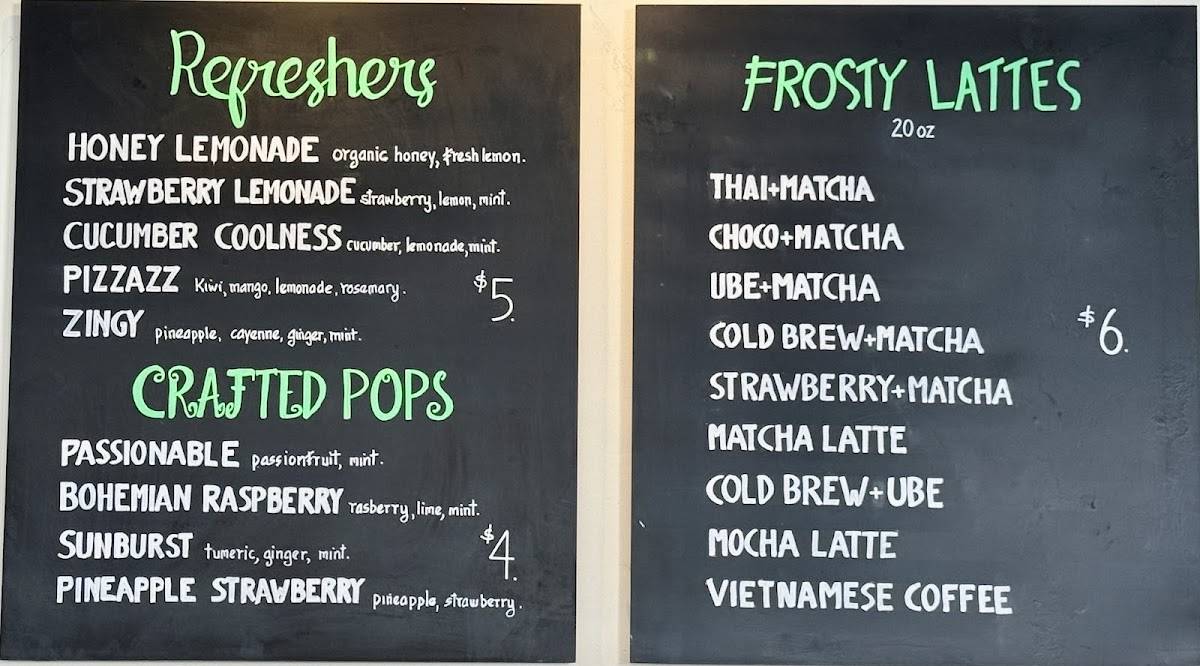 Refreshers
HONEY LEMONADE organic honey, fresh lemon.
STRAWBERRY LEMONADE strawberry, lemon, mint.
CUCUMBER COOLNESS cucumber, lemonade, mint.
PIZZAZZ Kiwi, mango, lemonade, rosemary.
$5.
ZINGY pineapple, cayenne, ginger, mint.
CRAFTED POPS
PASSIONABLE passionfruit, mint.
BOHEMIAN RASPBERRY rasberry, lime, mint.
SUNBURST tumeric, ginger, mint.
$4.
PINEAPPLE STRAWBERRY pineapple, strawberry.
FROSTY LATTES
20 oz
THAI+MATCHA
CHOCO+MATCHA
UBE+MATCHA
COLD BREW+MATCHA
$6.
STRAWBERRY+MATCHA
MATCHA LATTE
COLD BREW+UBE
MOCHA LATTE
VIETNAMESE COFFEE